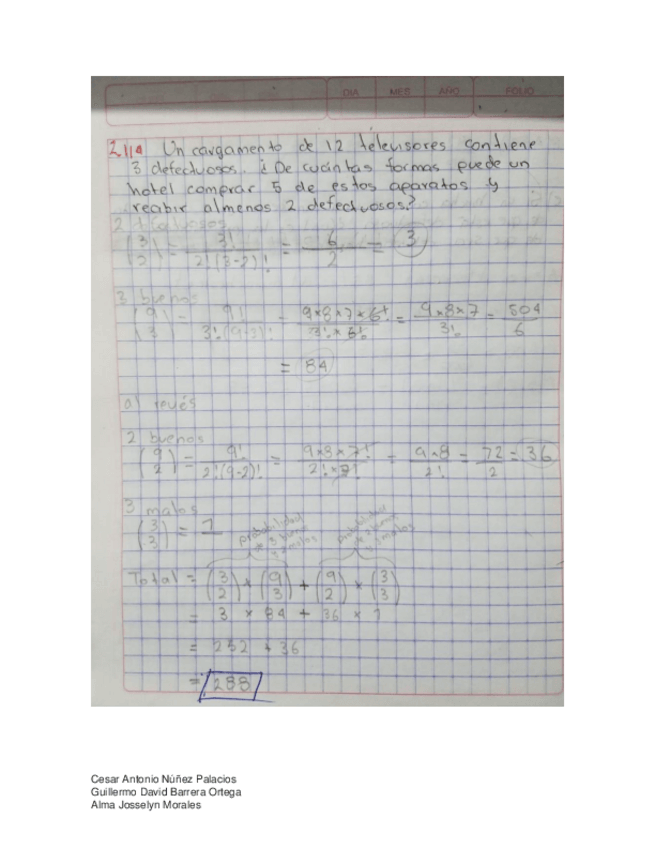 DIA MES AÑO FOLIO
2.114 Un cargamento de 12 televisores contiene
3 defectuosos. ¿De cuántas formas puede un
hotel comprar 5 de estos aparatos y
recibir almenos 2 defectuosos?
2
(3 2) = 3! / 2!(3-2)! = 6 / 2 = 3
3 buenos
(9 3) = 9! / 3!(9-3)! = 9x8x7x6! / 3!x6! = 9x8x7 / 3! = 504 / 6
= 84
al revés
2 buenos
(9 2) = 9! / 2!(9-2)! = 9x8x7! / 2!x7! = 9x8 / 2! = 72 / 2 = 36
3 malos
(3 3) = 1
probabilidad de 3 buenos y 2 malos
probabilidad de 2 buenos y 3 malos
Total = (3 2) x (9 3) + (9 2) x (3 3)
= 3 x 84 + 36 x 1
= 252 + 36
= 288
Cesar Antonio Núñez Palacios
Guillermo David Barrera Ortega
Alma Josselyn Morales